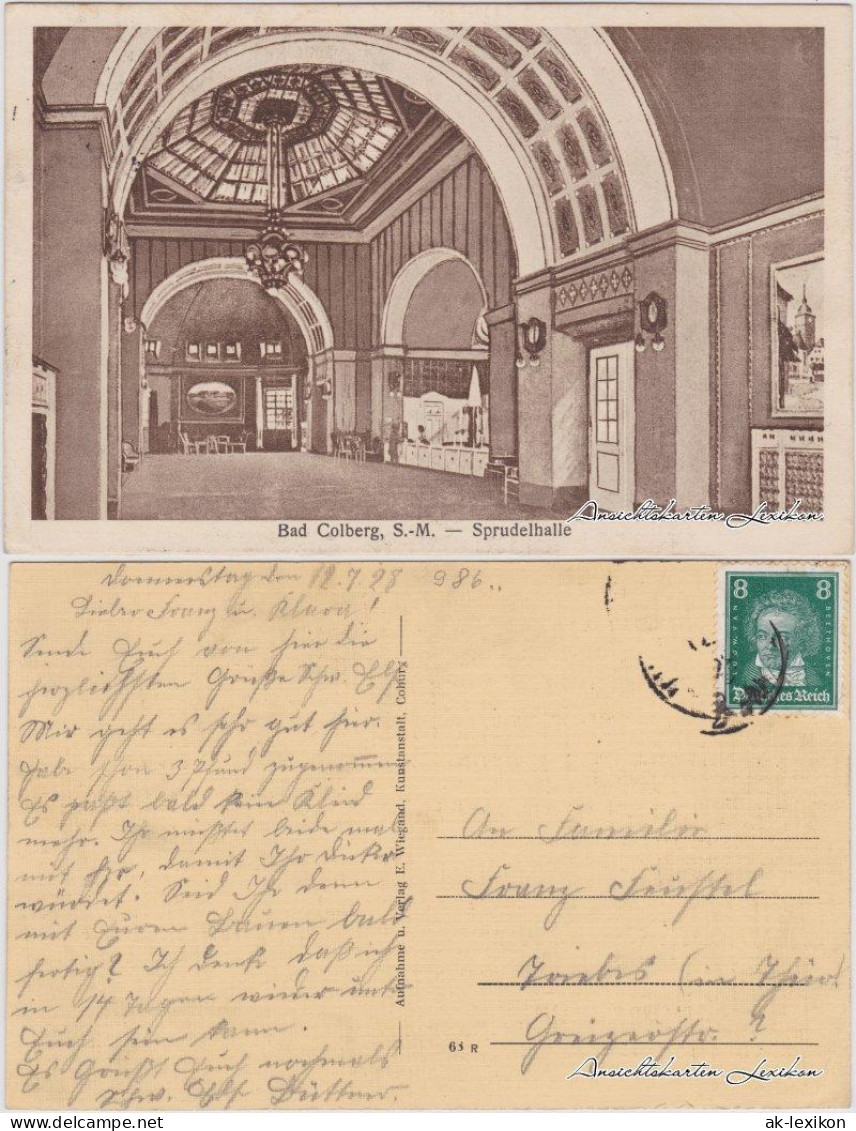 Bad Colberg, S.-M. — Sprudelhalle
Ansichtskarten Lexikon
Donnerstag den 12.7.28 986..
Lieber Franz u. Klara!
Sende Euch von hier die
herzlichsten Grüße Schw. Else
Mir geht es sehr gut hier.
Habe schon 3 Pfund zugenommen
Es paßt bald kein Kleid
mehr. Ihr müßtet beide mal
mit her, damit Ihr dicker
würdet. Seid Ihr denn
mit Euren Bauen bald
fertig? Ich denke daß ich
in 14 Tagen wieder unter
Euch sein kann.
Es Grüßt Euch nochmals
Schw. Else Büttner.
Aufnahme u. Verlag E. Wiegand, Kunstanstalt, Coburg
8 8
LUDW. VAN
BEETHOVEN
Deutsches Reich
An Familie
Franz Feustel
Triebes (in Thür.
Greizerstr. ?
63 R
Ansichtskarten Lexikon
ak-lexikon